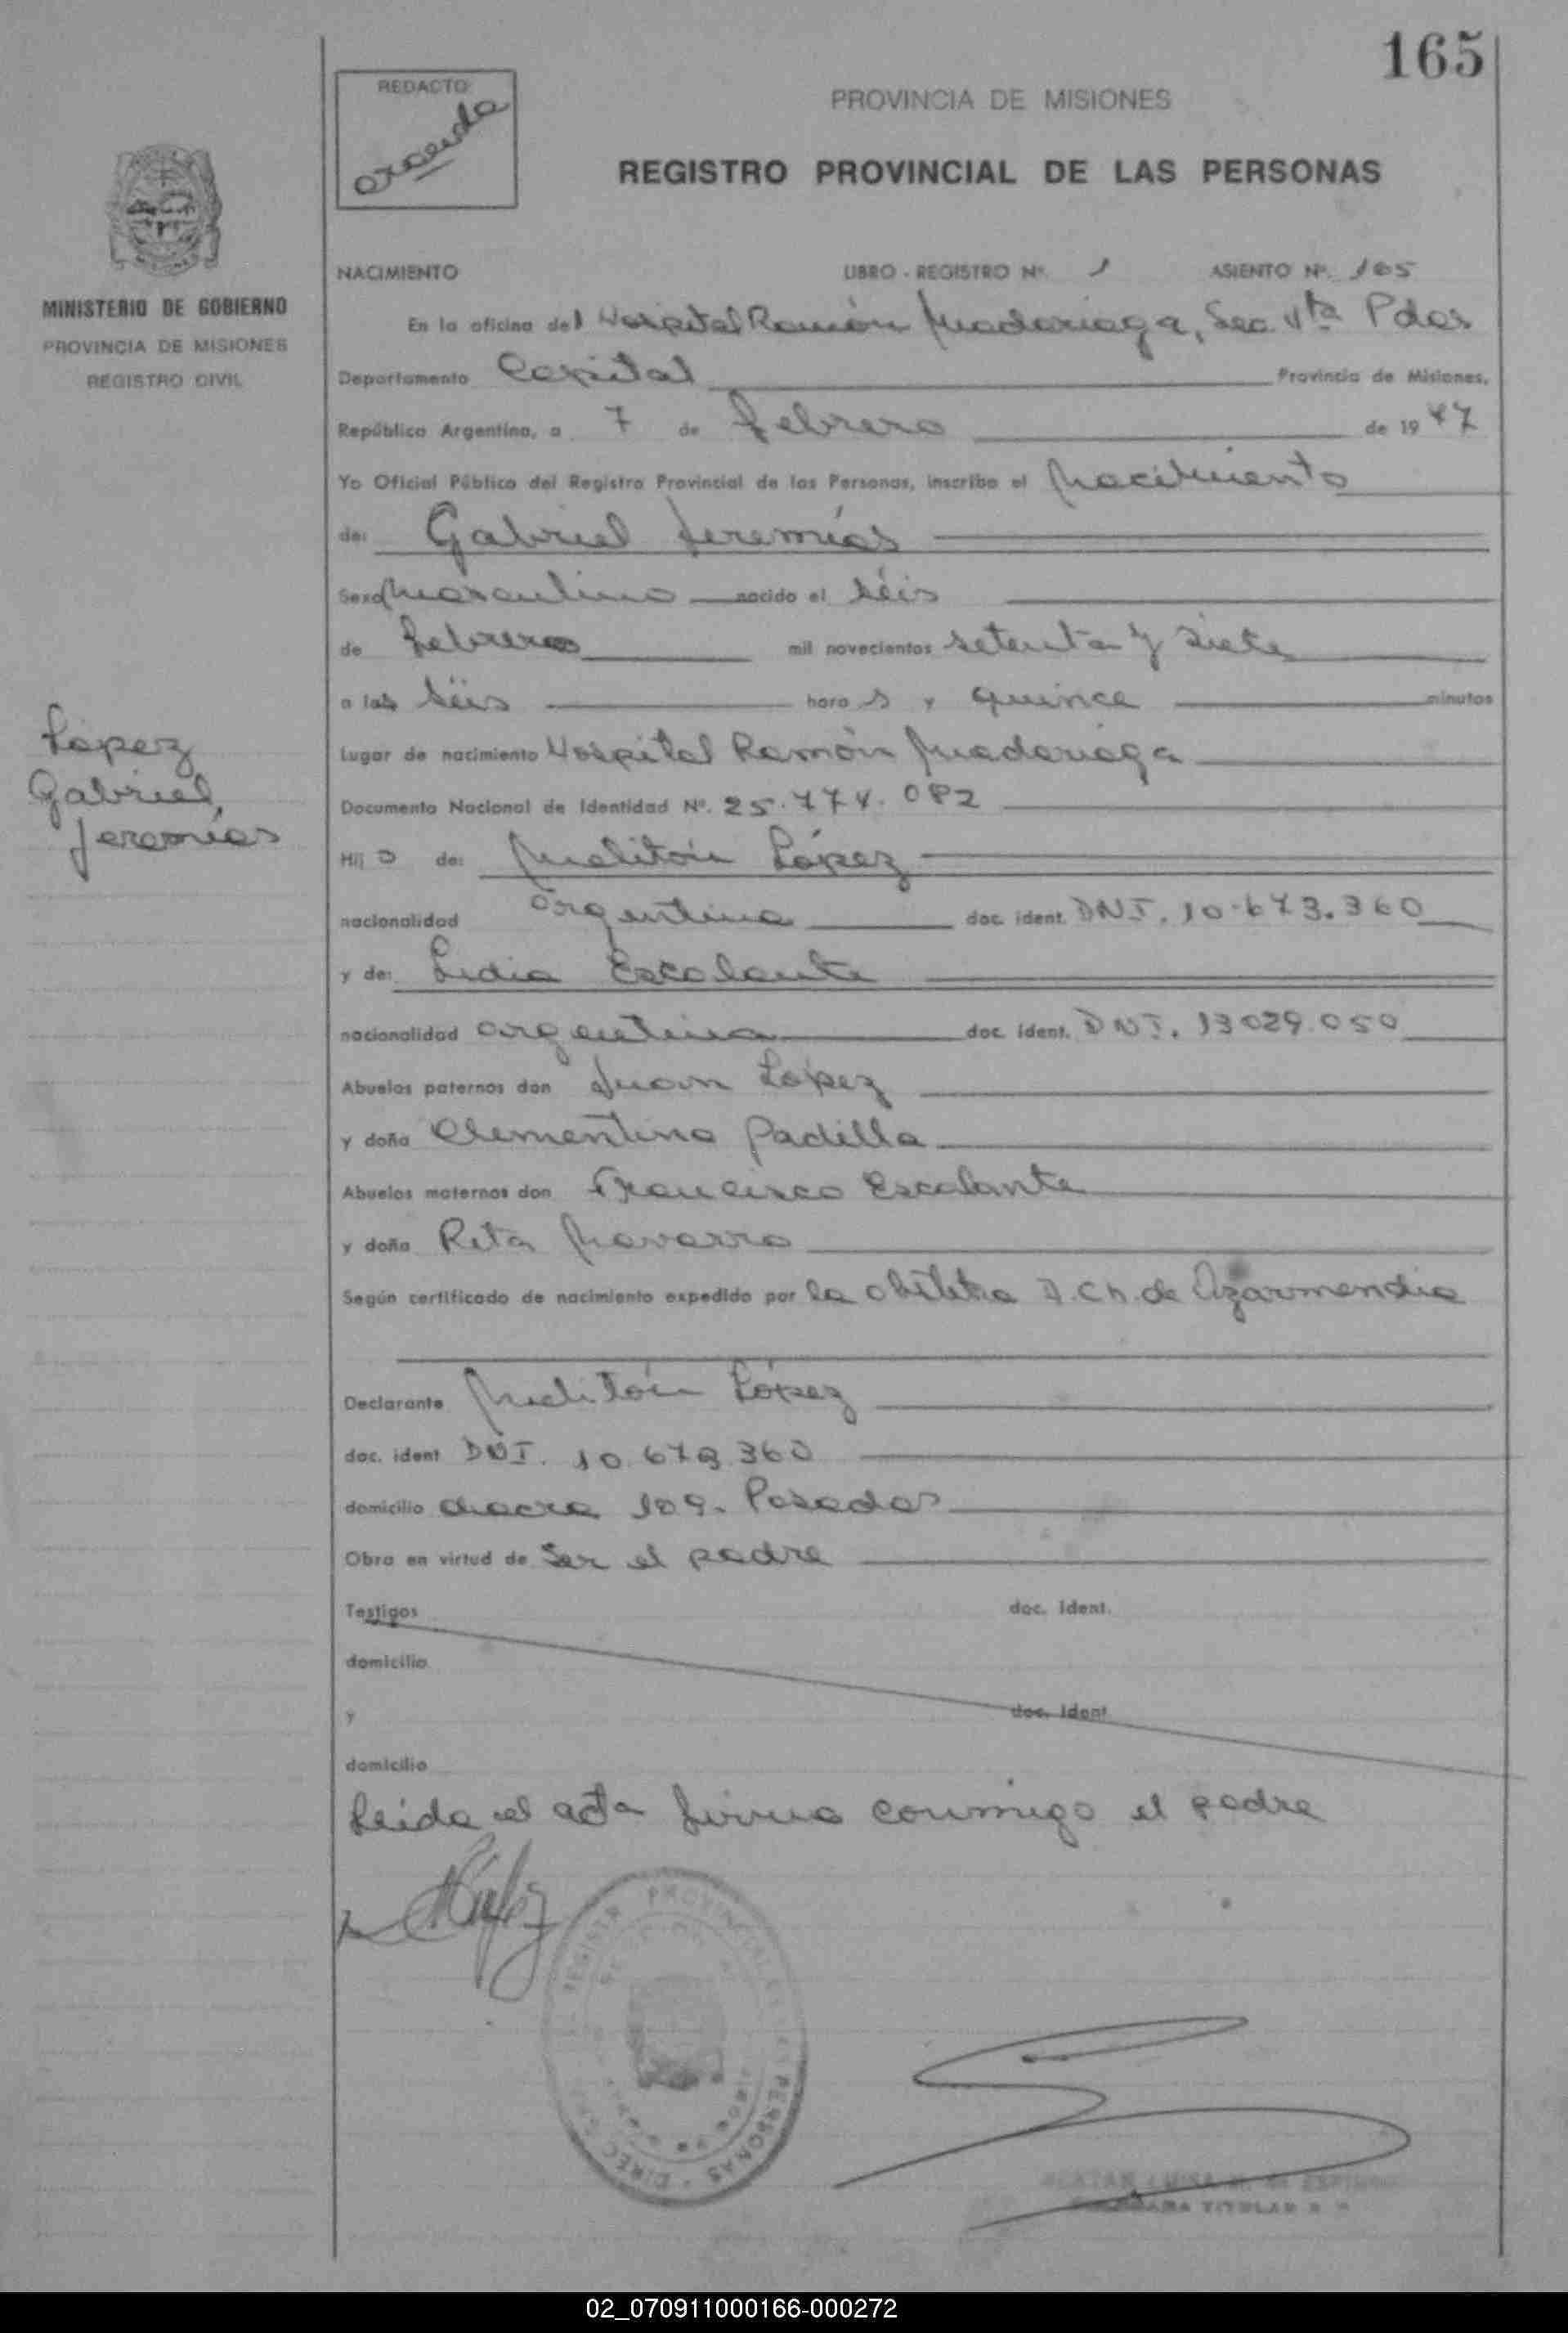 165
REDACTO
PROVINCIA DE MISIONES
REGISTRO PROVINCIAL DE LAS PERSONAS
MINISTERIO DE GOBIERNO
PROVINCIA DE MISIONES
REGISTRO CIVIL
NACIMIENTO LIBRO - REGISTRO Nº. 1 ASIENTO Nº. 165
En la oficina del Hospital Ramón Madariaga, Sec. Vta Pdas
Departamento Capital Provincia de Misiones,
República Argentina, a 7 de febrero de 1977
Yo Oficial Público del Registro Provincial de las Personas, inscribo el Nacimiento
de: Gabriel Jeremías
Sexo Masculino nacido el séis
de febrero mil novecientos setenta y siete
a las séis hora s y quince minutos
López
Gabriel,
Jeremías
Lugar de nacimiento Hospital Ramón Madariaga
Documento Nacional de Identidad Nº. 25.474.082
Hij o de: Melitón López
nacionalidad argentina doc. ident. DNI. 10.673.360
y de: Lidia Escalante
nacionalidad argentina doc. ident. DNI. 13029.050
Abuelos paternos don Juan López
y doña Clementina Padilla
Abuelos maternos don Francisco Escalante
y doña Rita Navarro
Según certificado de nacimiento expedido por la obstetra A. Ch. de Azarmendia
Declarante Melitón López
doc. ident DNI. 10.673.360
domicilio chacra 109. Posadas
Obra en virtud de Ser el padre
Testigos doc. ident.
domicilio
y doc. ident
domicilio
Leida el acta firma conmigo el padre
PROVINCIAL PERSONAS DIREC
TITULAR
02_070911000166-000272